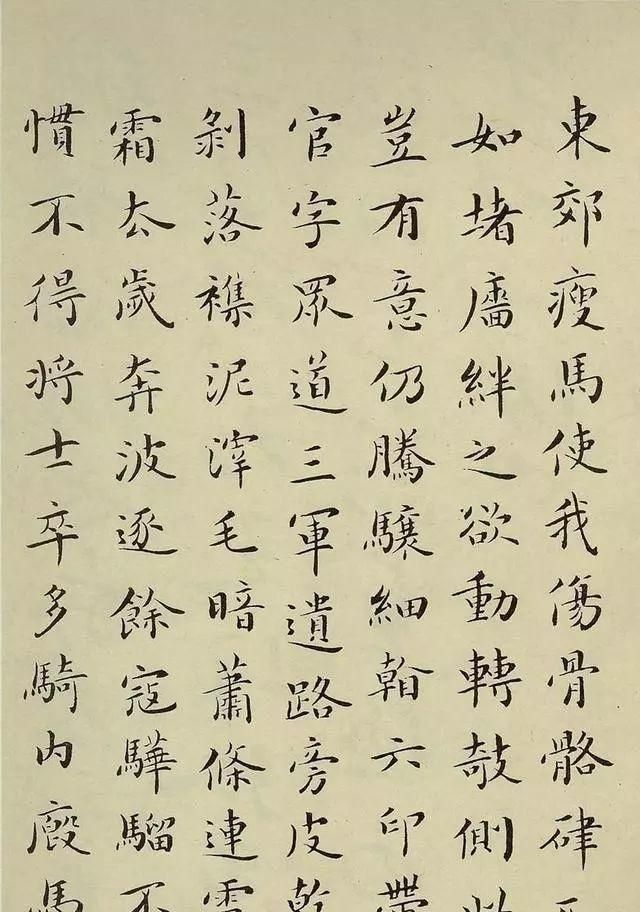 東郊瘦馬使我傷骨骼硉
如堵廧絆之欲動轉欹側此
豈有意仍騰驤細看六印帶
官字眾道三軍遺路旁皮乾
剝落襍泥滓毛暗蕭條連雪
霜去歲奔波逐餘寇驊騮不
慣不得將士卒多騎內廄馬